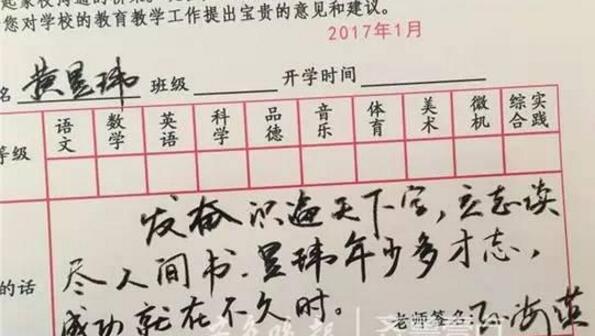 起家校沟通的桥梁。
您对学校的教育教学工作提出宝贵的意见和建议。
2017年1月
名 黄昱玮 班级 开学时间
等级 语文 数学 英语 科学 品德 音乐 体育 美术 微机 综合实践
的话 发奋识遍天下字,立志读
尽人间书.昱玮年少多才志,
成功就在不久时。
老师签名 海英
齐鲁晚报